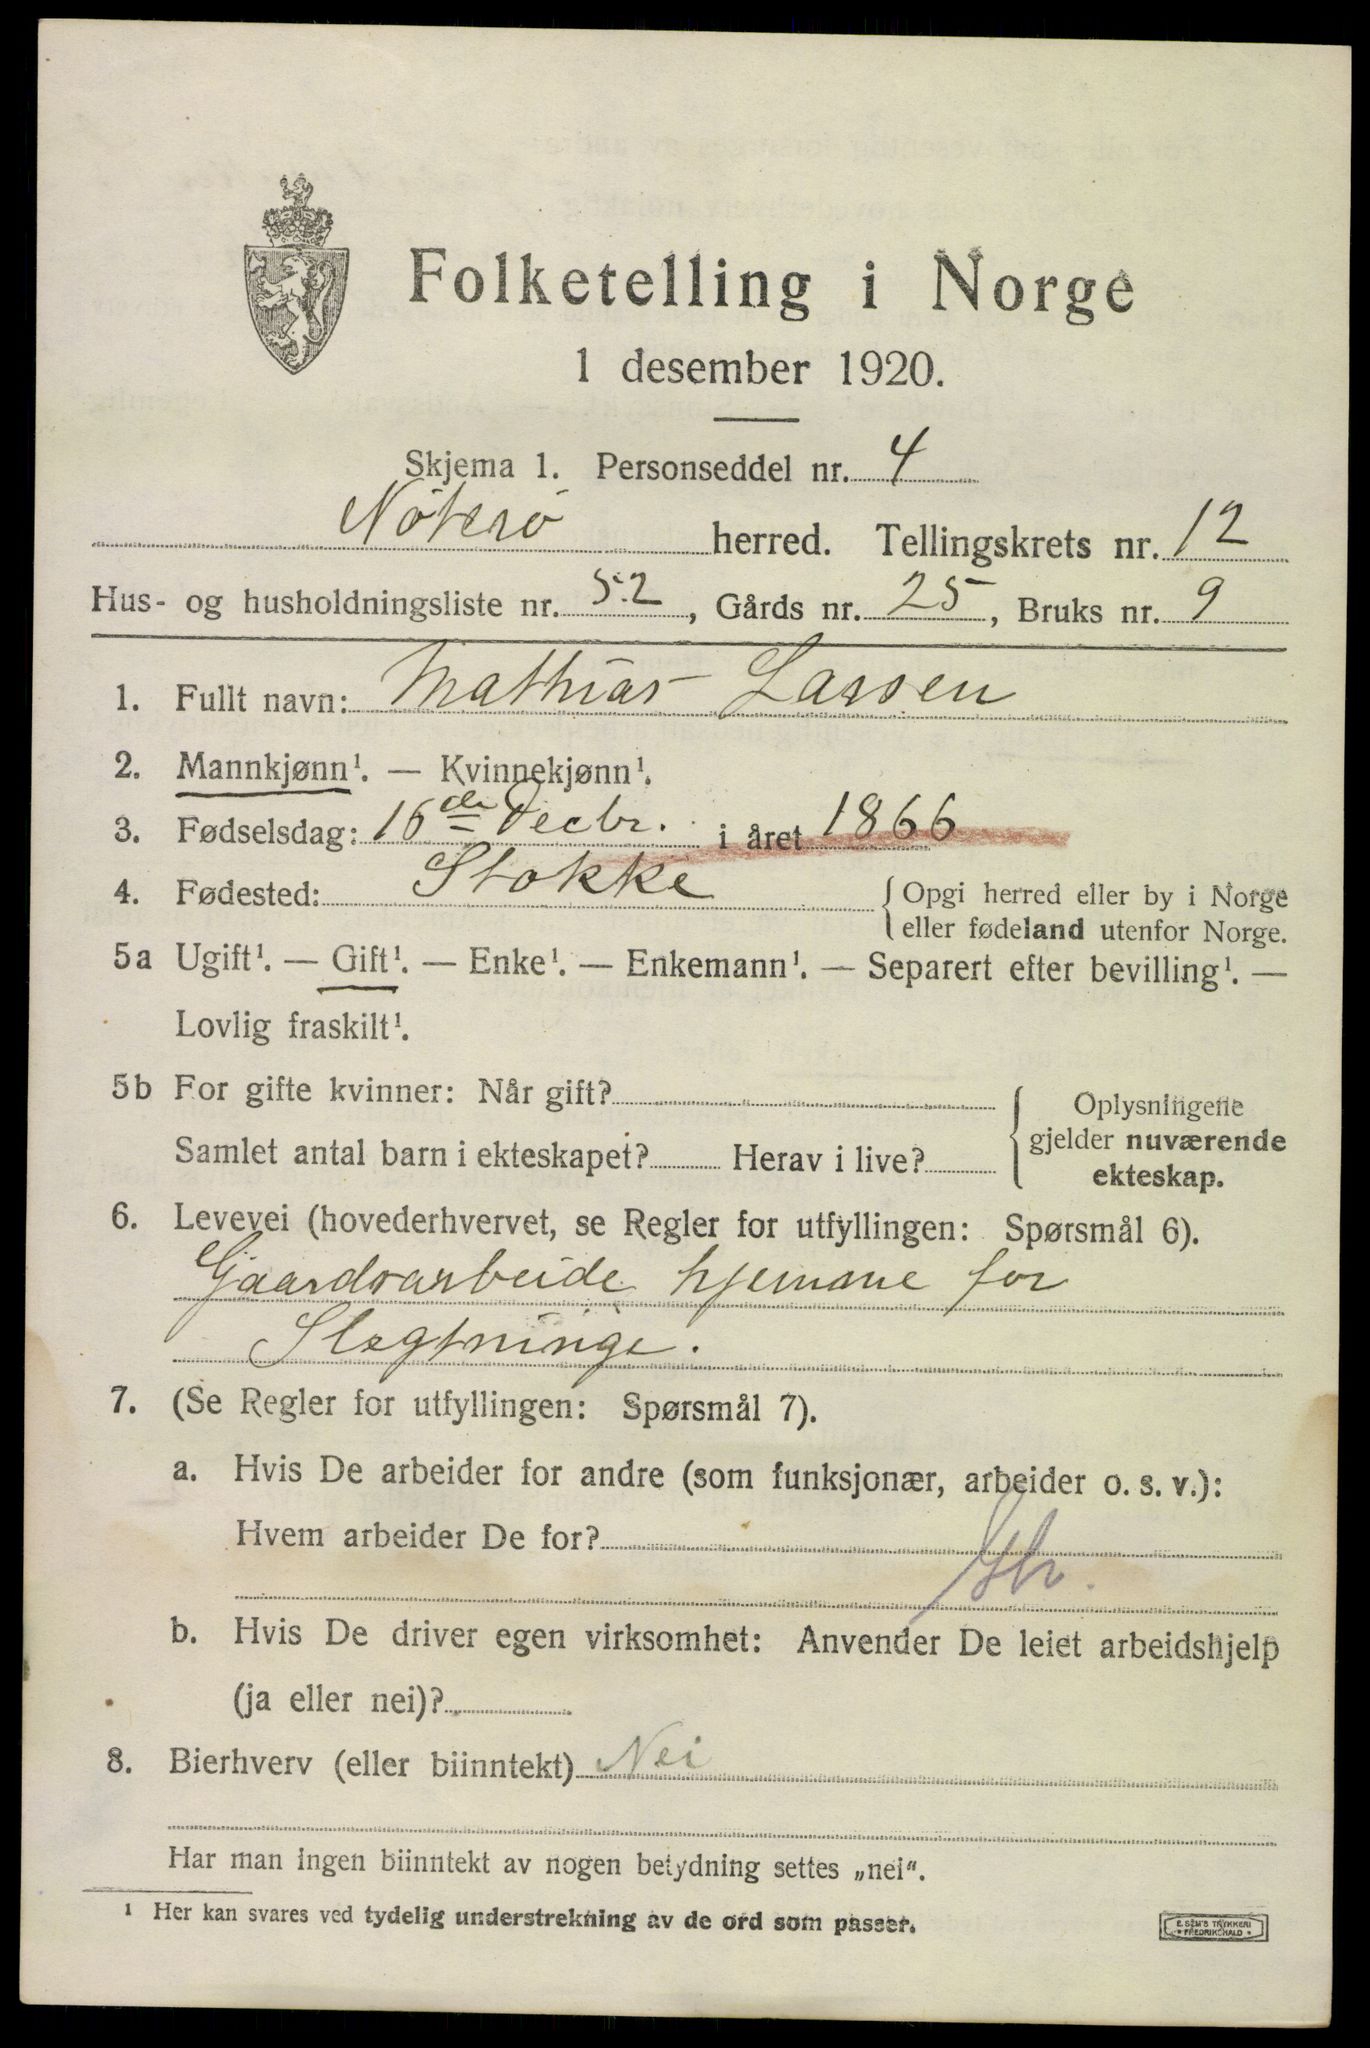 Folketelling i Norge
1 desember 1920.
Skjema 1. Personseddel nr. 4
Nöterö herred. Tellingskrets nr. 12
Hus- og husholdningsliste nr. 52, Gårds nr. 25, Bruks nr. 9
1. Fullt navn: Mathias Larsen
2. Mannkjønn¹. — Kvinnekjønn¹.
3. Fødselsdag: 16de Decbr. i året 1866
4. Fødested: Stokke {Opgi herred eller by i Norge
eller fødeland utenfor Norge.
5a Ugift¹. — Gift¹. — Enke¹. — Enkemann¹. — Separert efter bevilling¹. —
Lovlig fraskilt¹.
5b For gifte kvinner: Når gift? { Oplysningene
gjelder nuværende
Samlet antal barn i ekteskapet? Herav i live?
ekteskap.
6. Levevei (hovederhvervet, se Regler for utfyllingen: Spørsmål 6).
Gaardsarbeide hjemme for
Slegtninge.
7. (Se Regler for utfyllingen: Spørsmål 7).
a. Hvis De arbeider for andre (som funksjonær, arbeider o. s. v.):
Hvem arbeider De for?
b. Hvis De driver egen virksomhet: Anvender De leiet arbeidshjelp
(ja eller nei)?
8. Bierhverv (eller biinntekt) Nei
Har man ingen biinntekt av nogen betydning settes „nei".
¹ Her kan svares ved tydelig understrekning av de ord som passer.
E. SEM'S TRYKKERI
* FREDRIKSHALD *